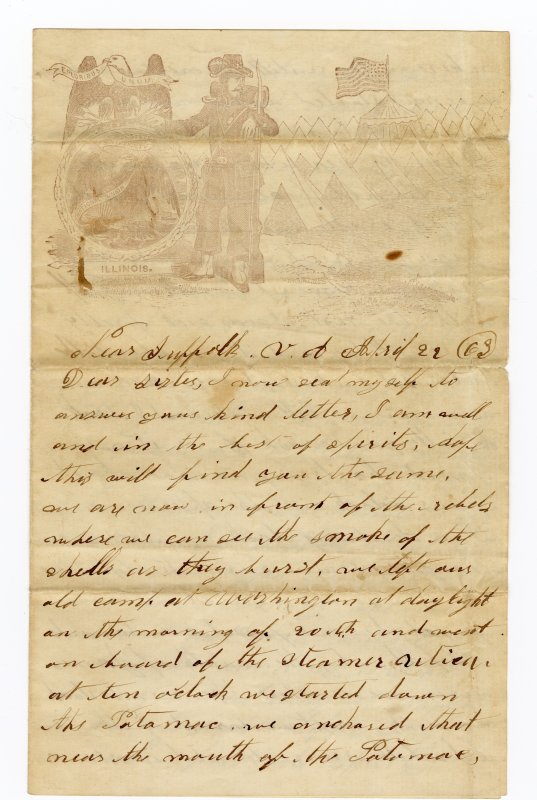 E PLURIBUS UNUM
ILLINOIS.
Near Suffolk. V. A April 22 63
Dear Sister, I now seat myself to
answer your kind letter, I am well
and in the best of spirits, hope
this will find you the same,
we are now in front of the rebels
where we can see the smoke of the
shells as they burst, we left our
old camp at Washington at daylight
on the morning of 20th and went
on board of the steamer utica.
at ten o'clock we started down
the Potamac. we anchored that
near the mouth of the Potamac,